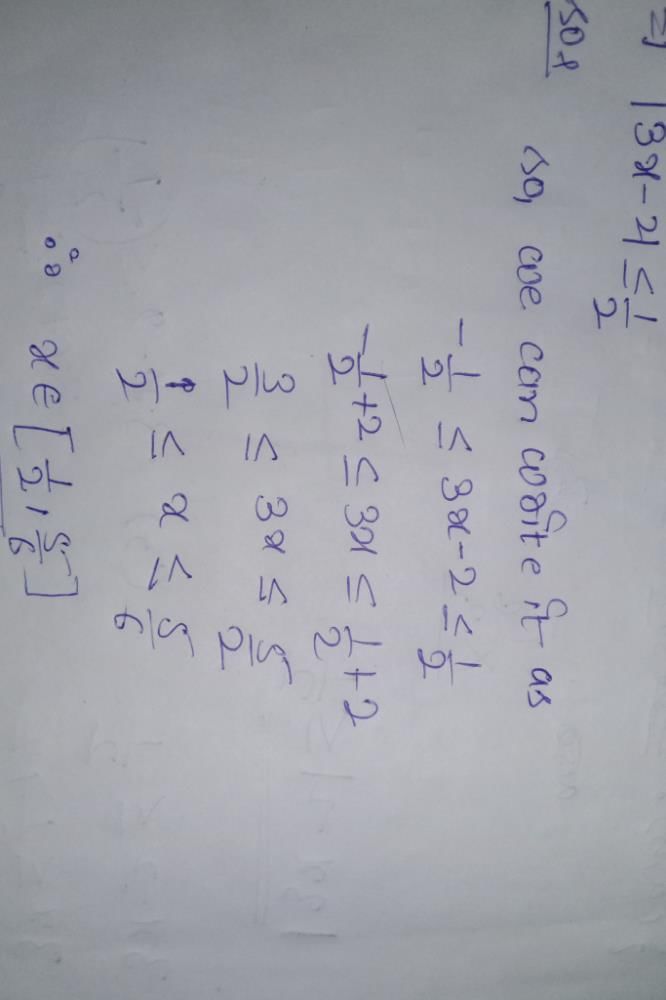 ⇒ |3x-2| ≤ 1/2
Sol
So, we can write it as
-1/2 ≤ 3x-2 ≤ 1/2
-1/2+2 ≤ 3x ≤ 1/2+2
3/2 ≤ 3x ≤ 5/2
1/2 ≤ x ≤ 5/6
∴ x ∈ [1/2, 5/6]